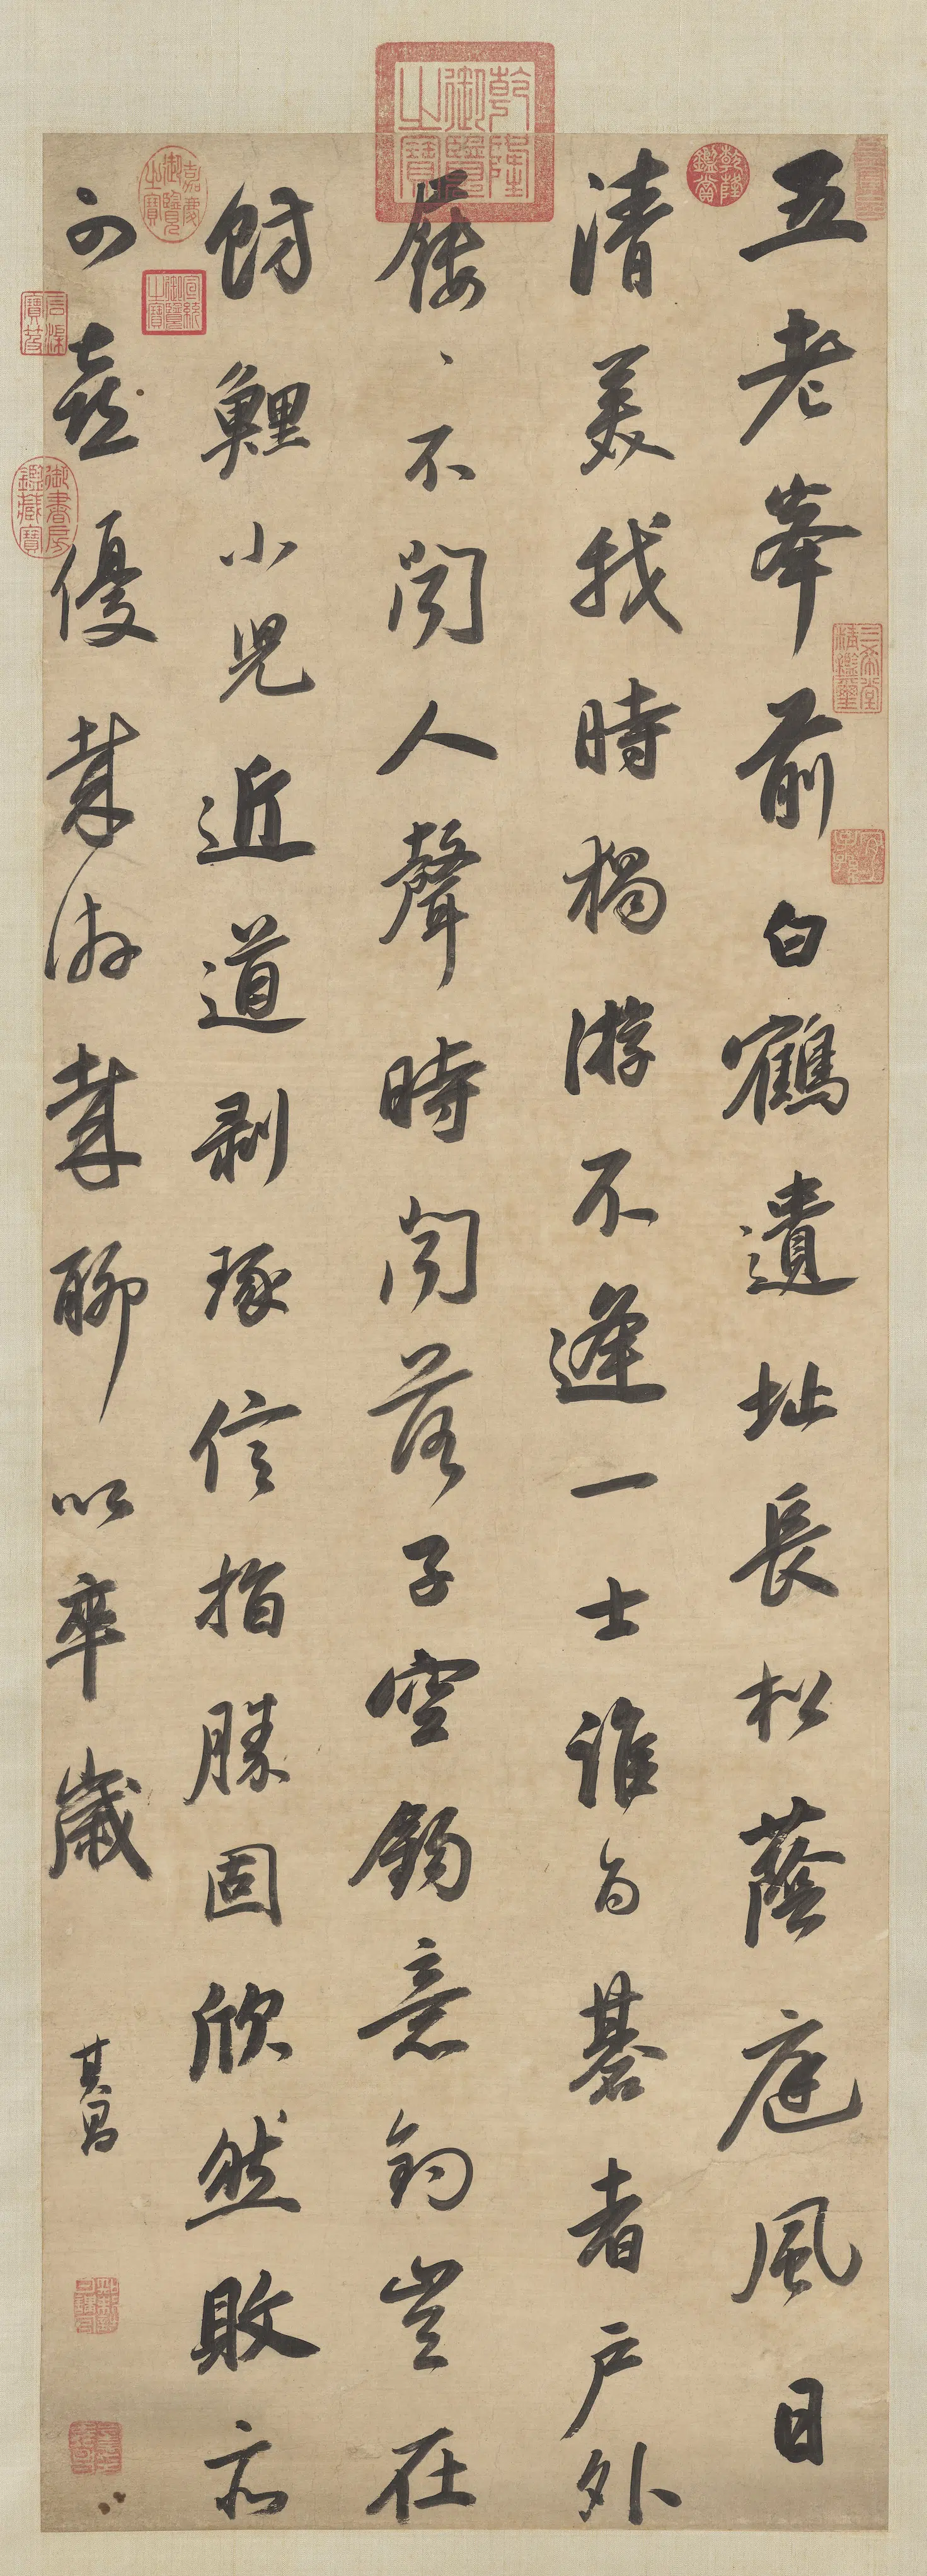 五老峯前白鶴遺址長松蔭庭風日
清美我時獨游不逢一士誰与棊者戶外
屨、不聞人聲時聞落子空鉤意釣豈在
魴鯉小兒近道剝琢信指勝固欣然敗亦
可喜優哉游哉聊以卒歲
其昌
乾隆御覽之寶
乾隆鑑賞
三希堂精鑑璽
宜子孫
嘉慶御覽之寶
宣統御覽之寶
石渠寶笈
御書房鑑藏寶